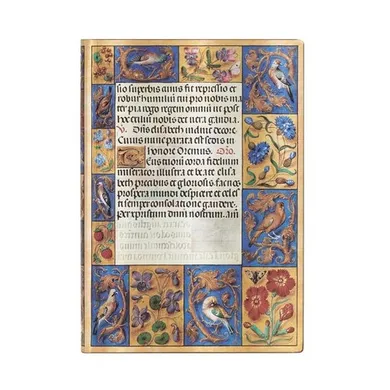 sio superbis auius sit repressio et
robur humilium tui pro nobis ma
ter pia rego regem omnium ut post
hoc exilium nobis det vera gaudia.
V. Dns elisabeth induit decore.
Cuius nunc parata est sedis in
honore Oremus. Oro.
Tuorum corda fidelium
miserator illustra et beate elisa
beth precibus et gloriosis factes
prospera mundi despicere et celesti
semper consolatione gaudere.
Per xpristum dnm nostrum. Am